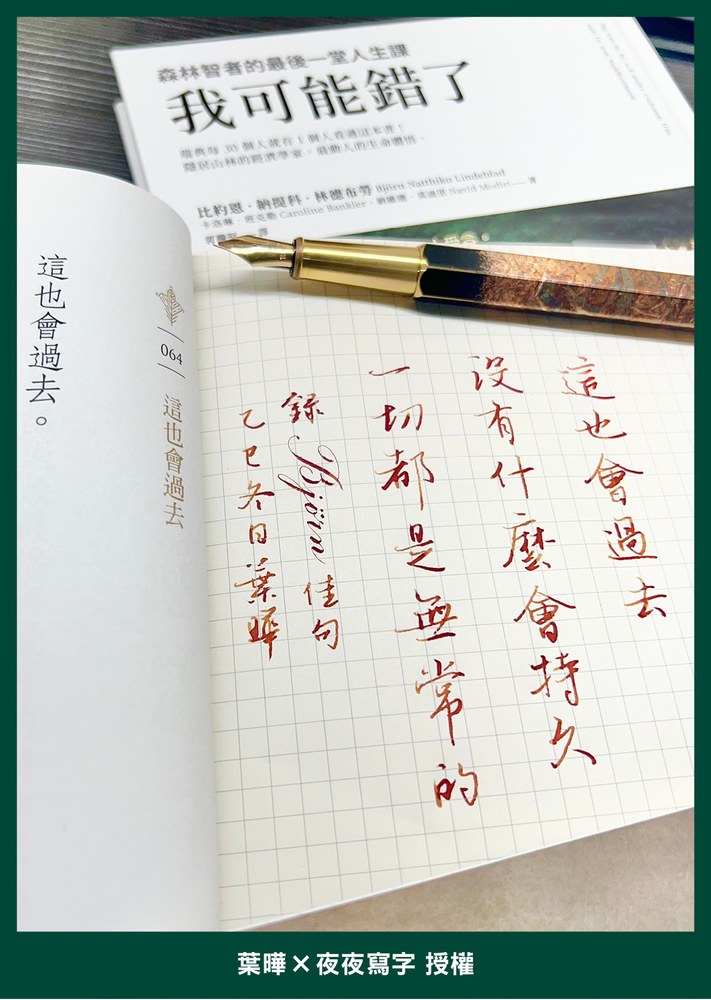 森林智者的最後一堂人生課
我可能錯了
瑞典每 30 個人就有 1 個人看過這本書！
隱居山林的經濟學家，最動人的生命體悟。
比約恩・納提科・林德布勞 Björn Natthiko Lindeblad
卡洛琳・班克勒 Caroline Bankler
Navid Modiri 著
譯
這也會過去。
064
這也會過去
這也會過去
沒有什麼會持久
一切都是無常的
錄 Björn 佳句
乙巳冬日葉曄
葉曄×夜夜寫字 授權